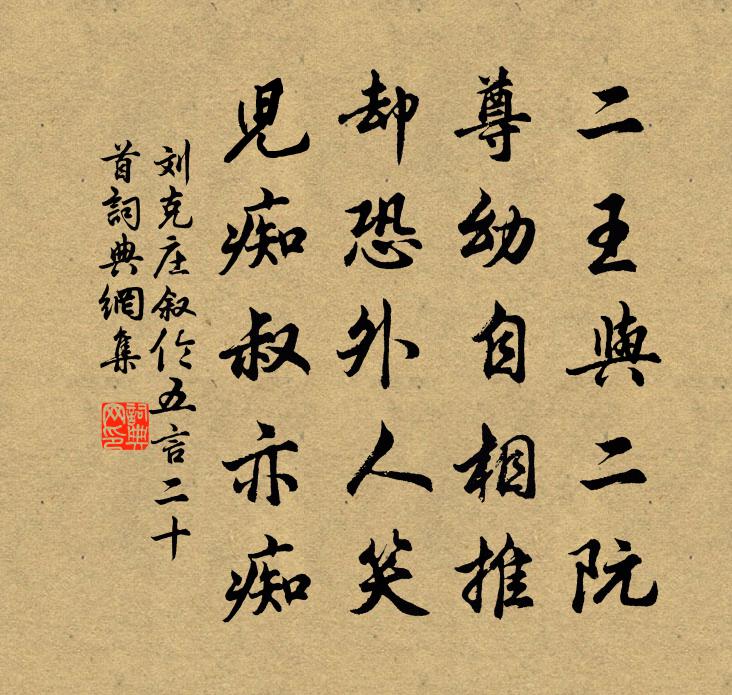 二王與二阮
尊幼自相推
却恐外人笑
児痴叔亦痴
刘克庄叙伦五言二十
首詞典網集
詞典
网印